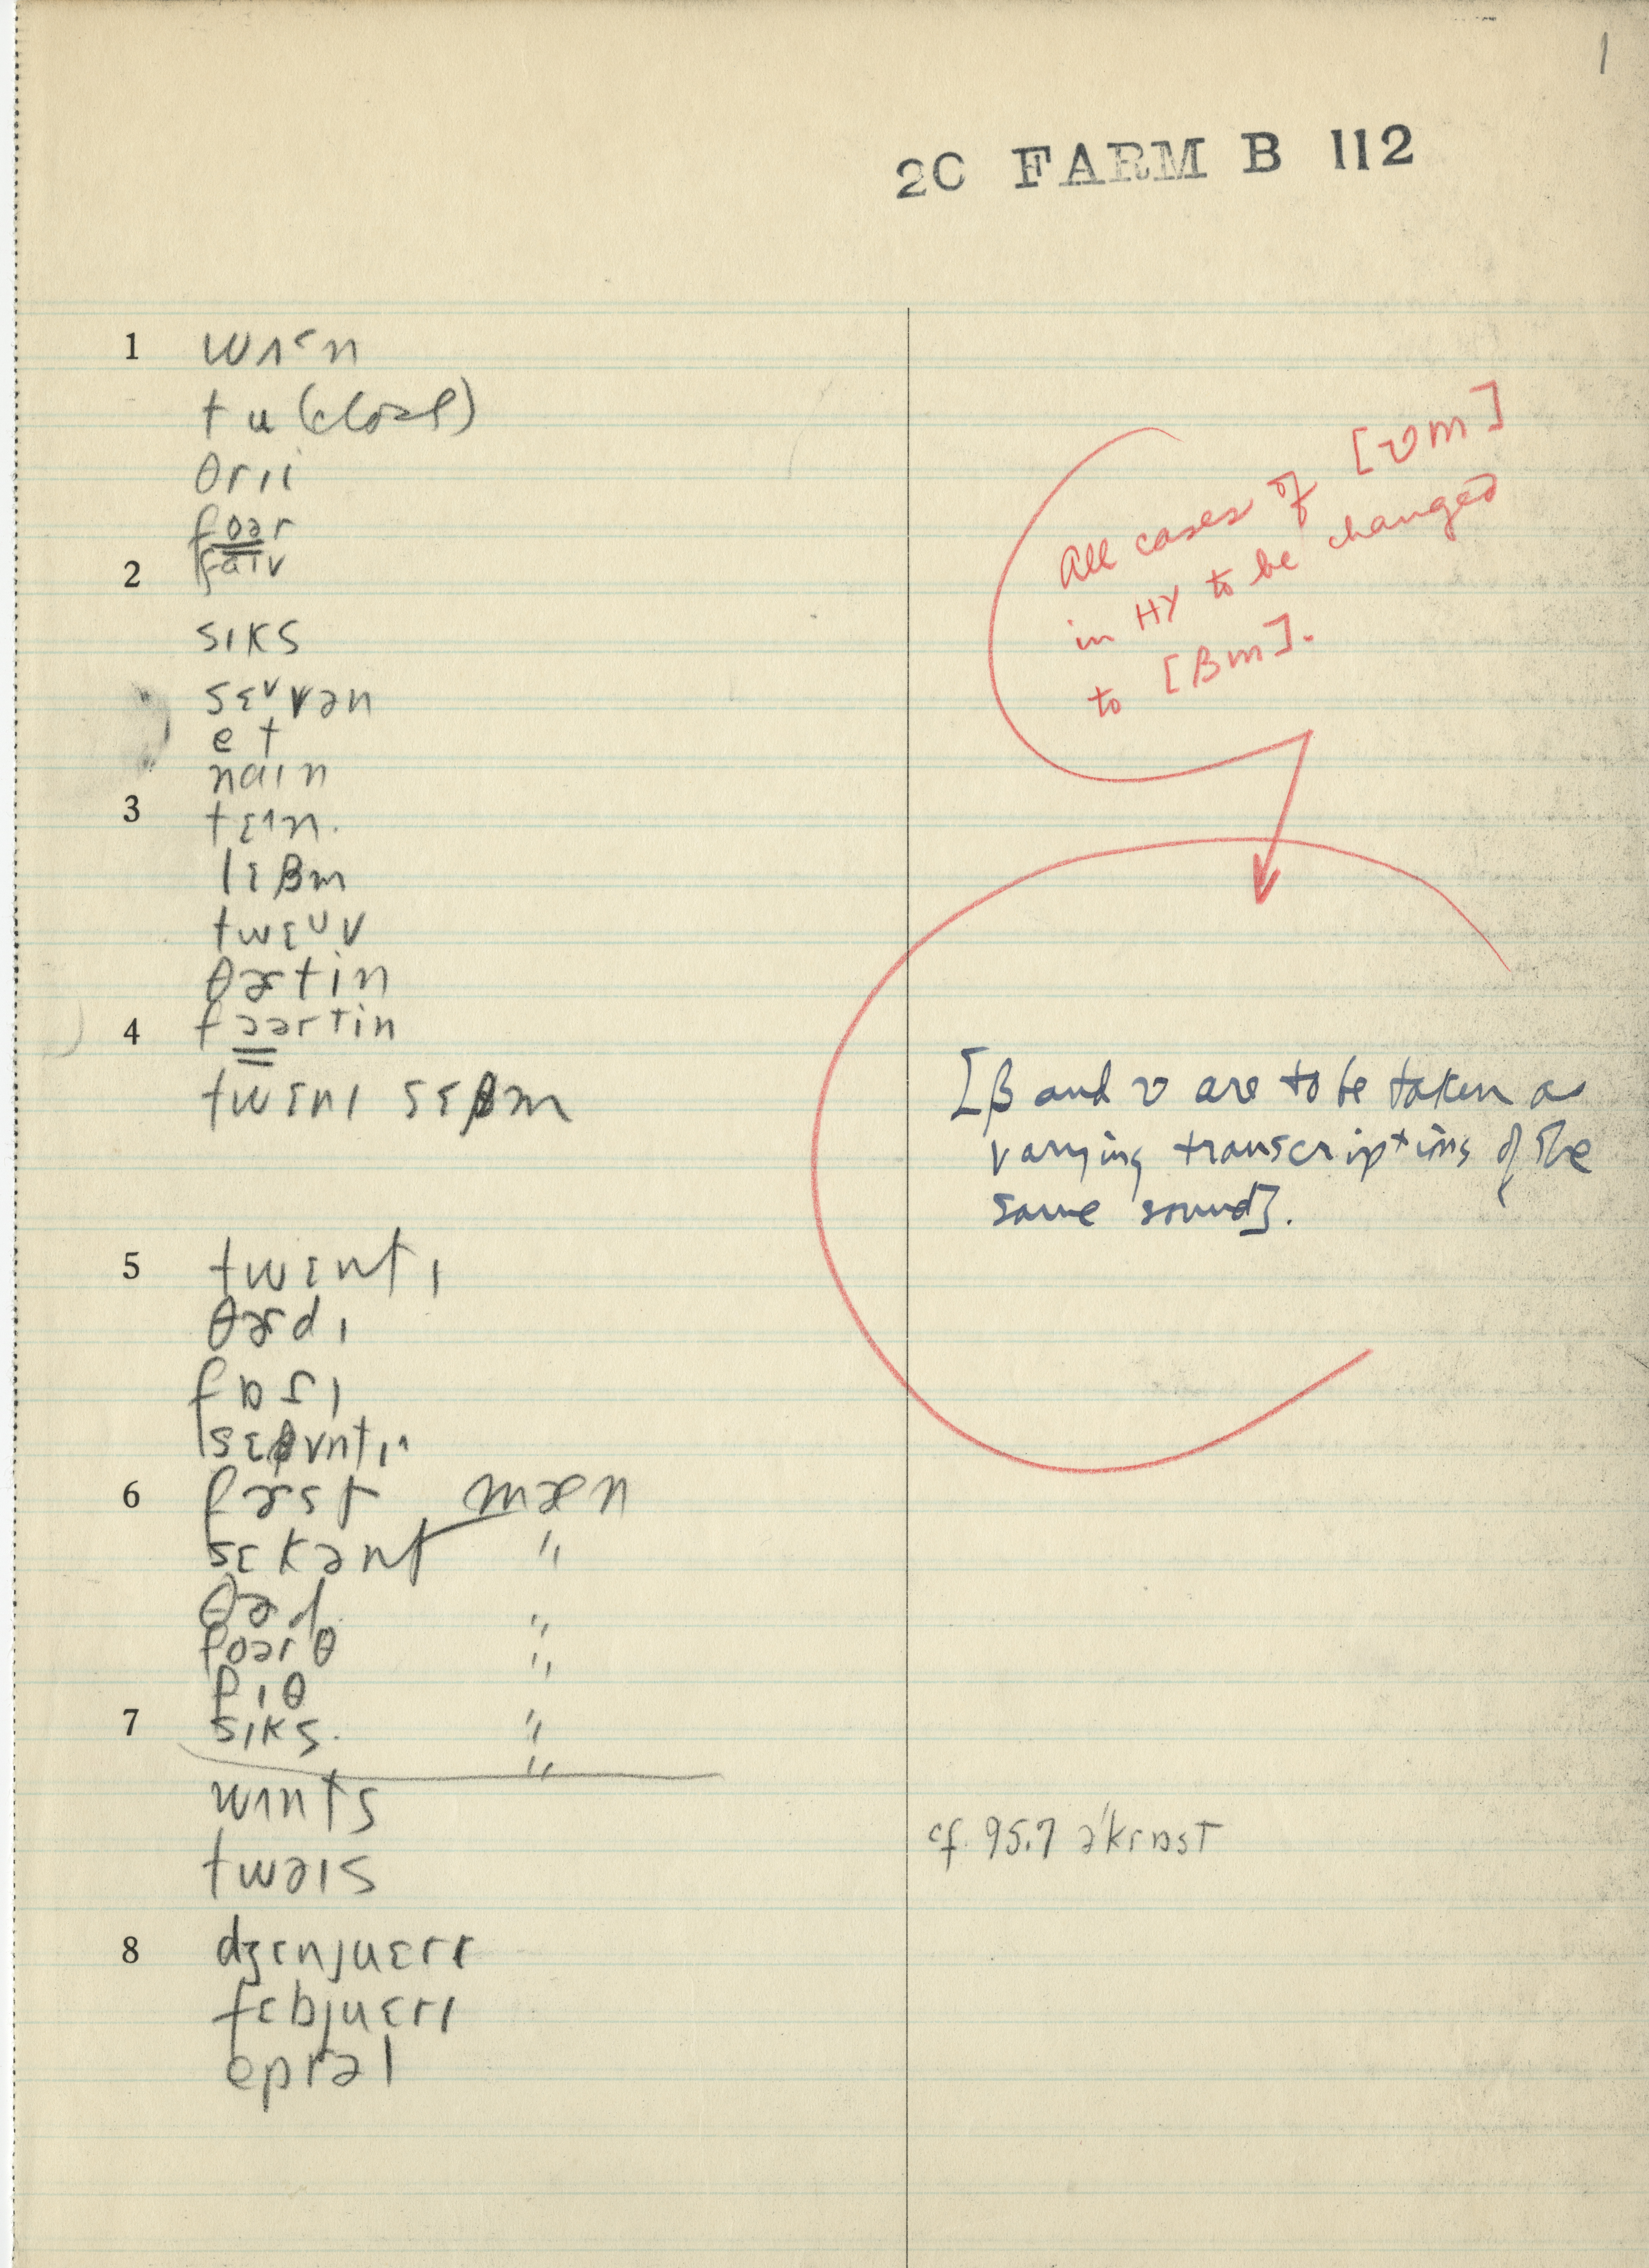 1
2C FARM B 112
1 wʌᵋn
tu (close)
θrɪi
foər
2 faɪv
sɪks
sɛᵛvən
et
naɪn
3 tɛɪn.
lɛβm
twɛᶷv
θɚtin
4 fɔərtin
twɛnɪ sɛβm
5 twɛntɪ
θɚdɪ
fɒrɪ
sɛβvntɪ
6 fɚst mæn
sɛkənt "
θɚd "
foərθ "
fɪθ "
7 sɪks. "
wʌnts
twəɪs
8 dʒɛnjuɛrɪ
fɛbjuɛrɪ
eprəl
All cases of [ʋm]
in HY to be changed
to [βm].
[β and ʋ are to be taken as
varying transcriptions of the
same sound].
cf. 95.7 ə'krɒst